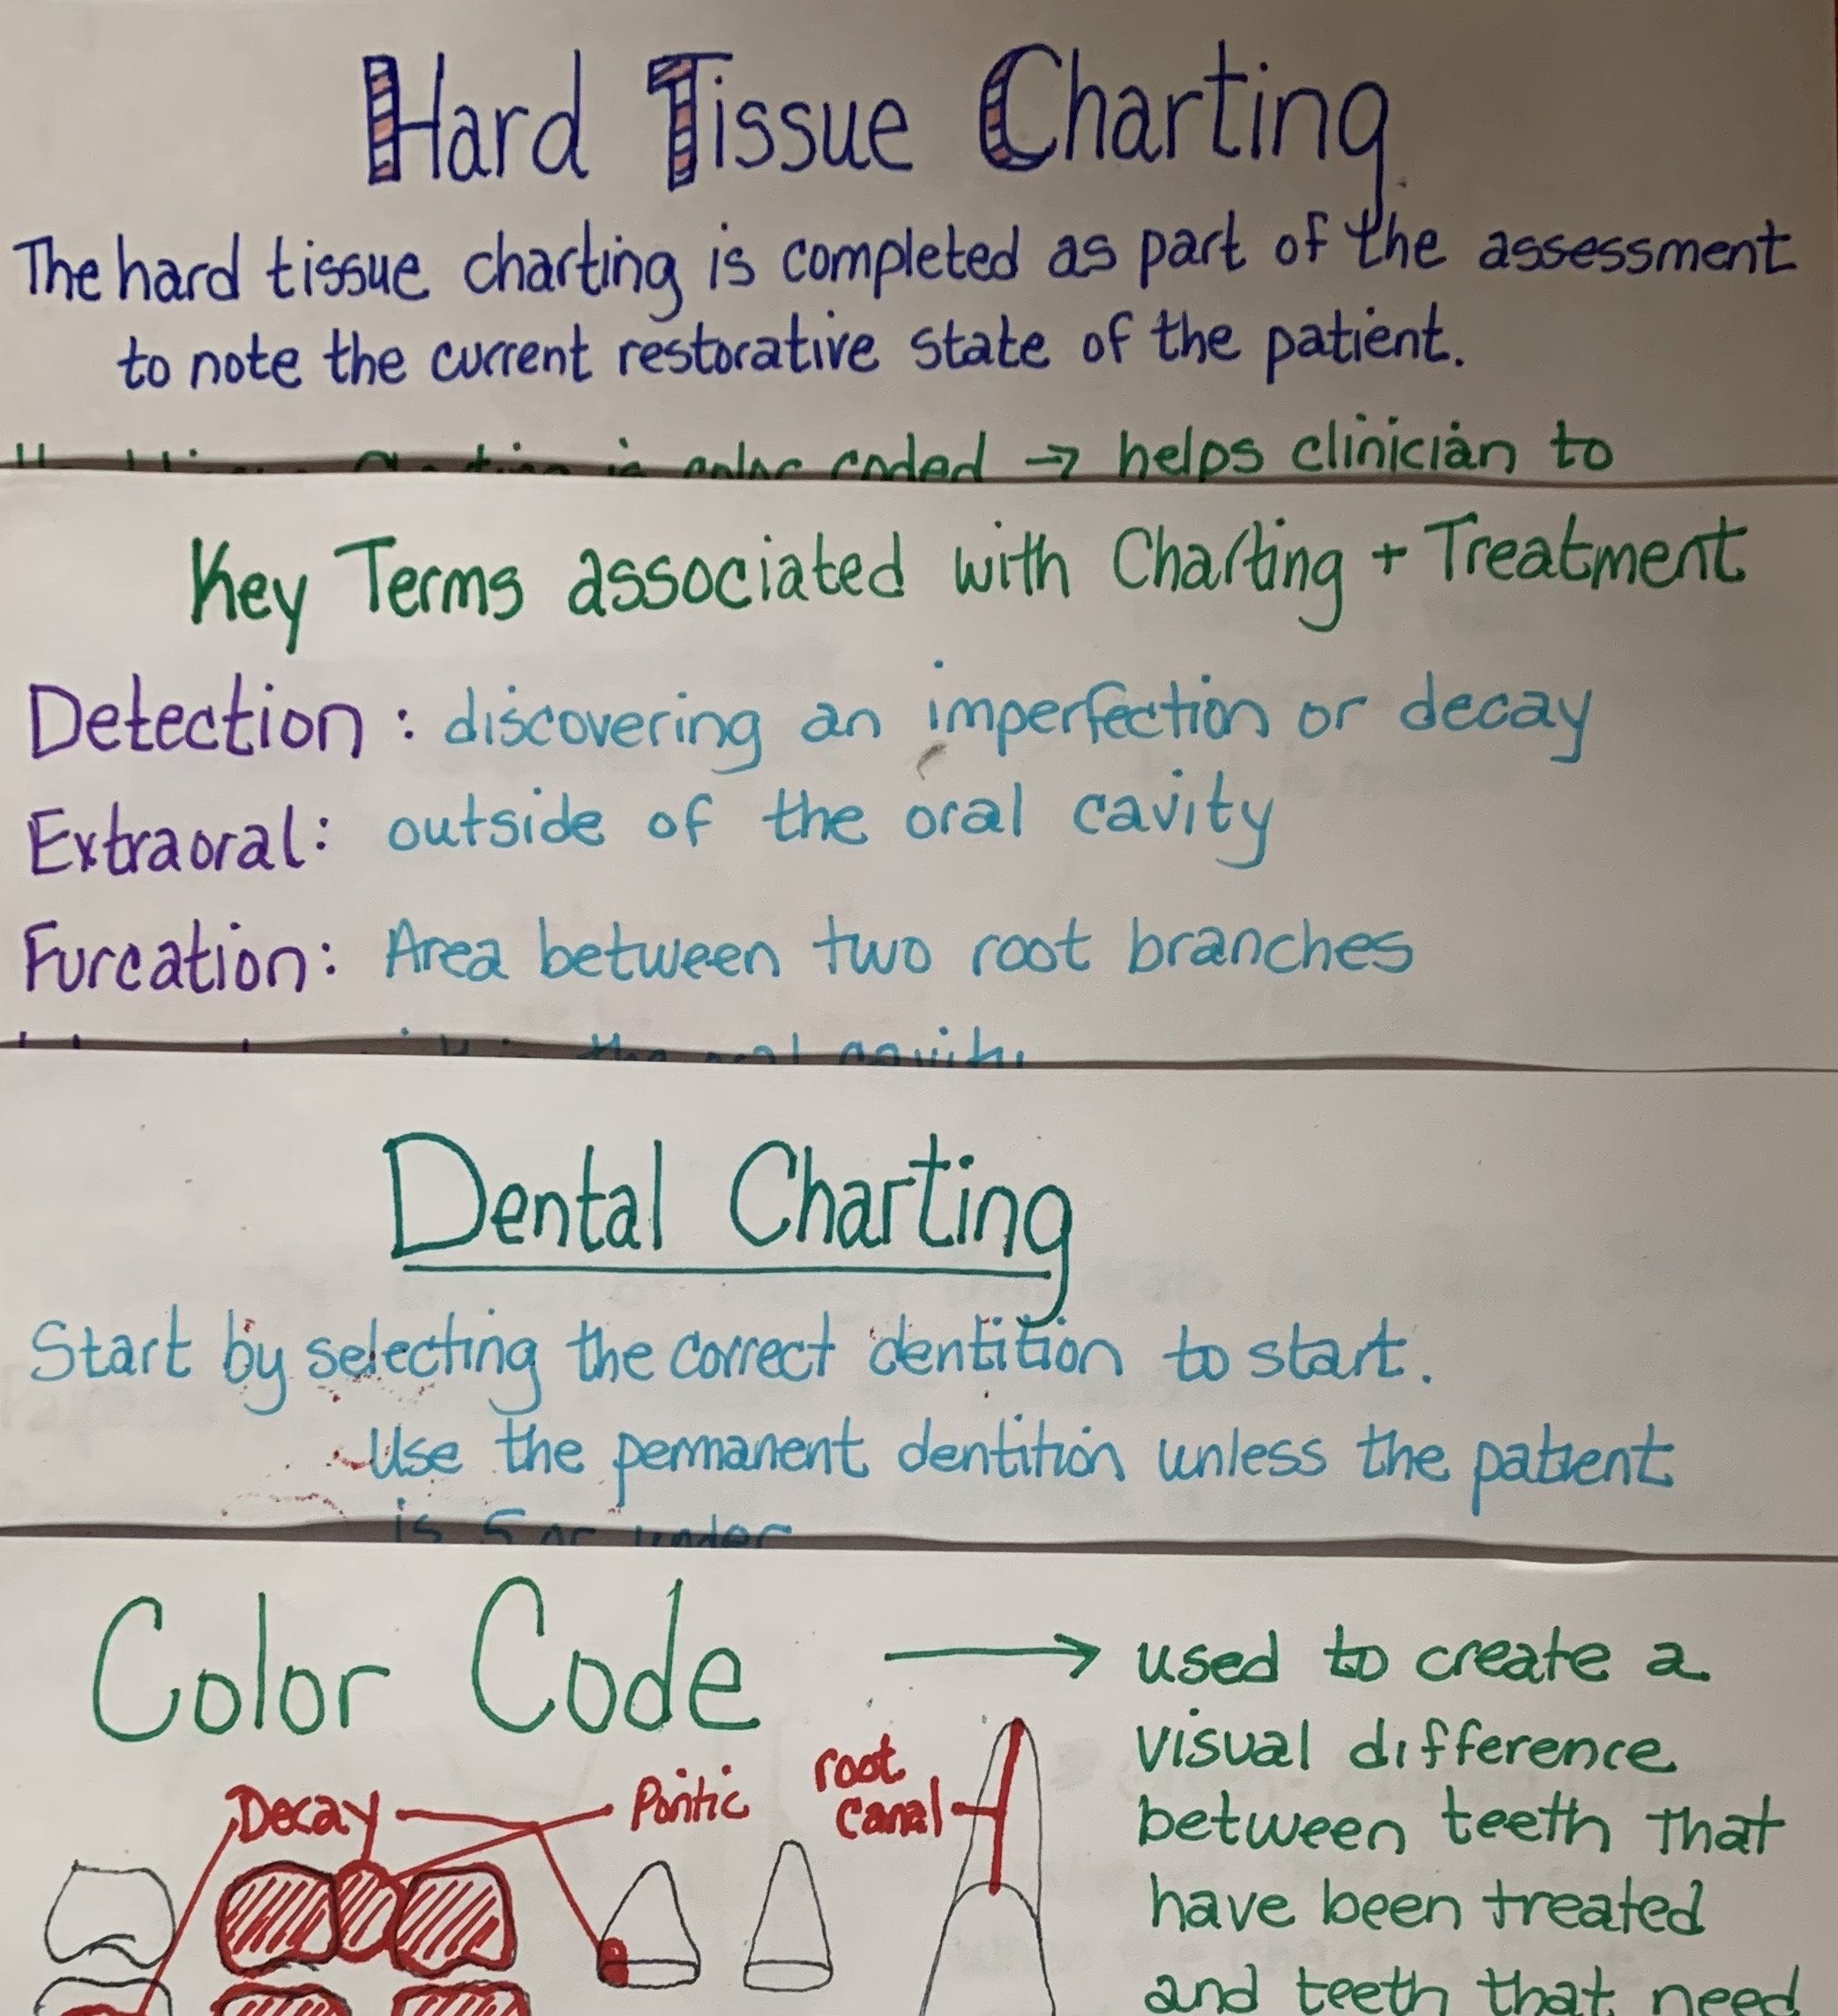 Hard Tissue Charting
The hard tissue charting is completed as part of the assessment
to note the current restorative state of the patient.
is color coded → helps clinician to
Key Terms associated with Charting + Treatment
Detection : discovering an imperfection or decay
Extraoral: outside of the oral cavity
Furcation: Area between two root branches
the oral cavity
Dental Charting
Start by selecting the correct dentition to start.
Use the permanent dentition unless the patient
is 5 or under
Color Code → used to create a
visual difference
between teeth that
have been treated
and teeth that need
Decay
Pontic
root
canal